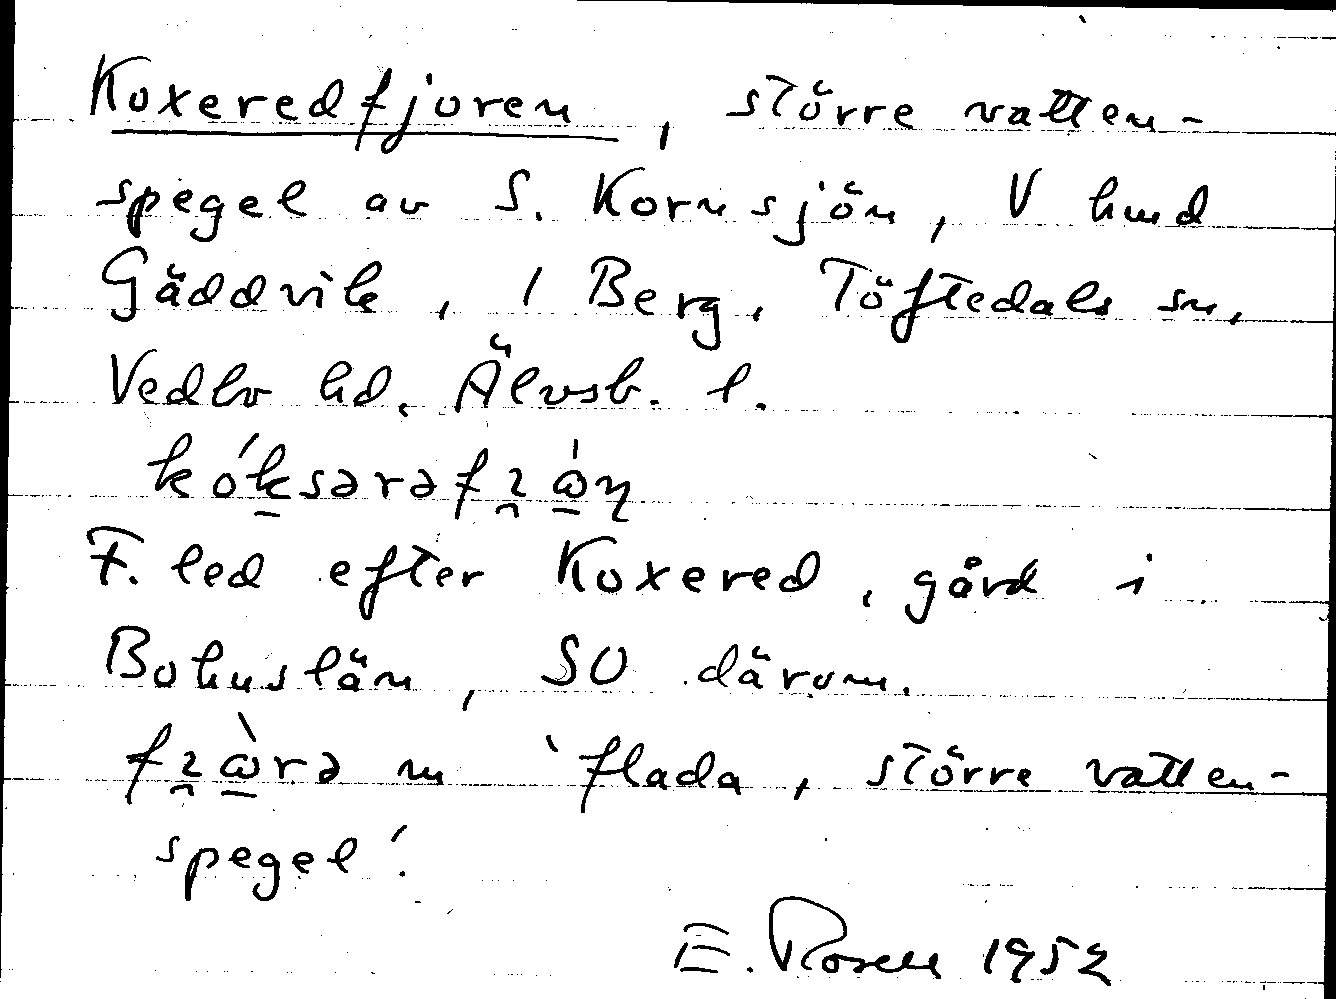 Koxeredfjoren, större vatten-
spegel av S. Kornsjön, V hmd
Gäddvik, 1 Berg, Töftedals sn,
Vedbo hd, Älvsb. l.
kóksərəfɿ̯ὼ̱η
F. led efter Koxered, gård i
Bohuslän, SO därom.
fɿ̯ὼ̱rə m 'flada, större vatten-
spegel'.
E. Rosell 1952